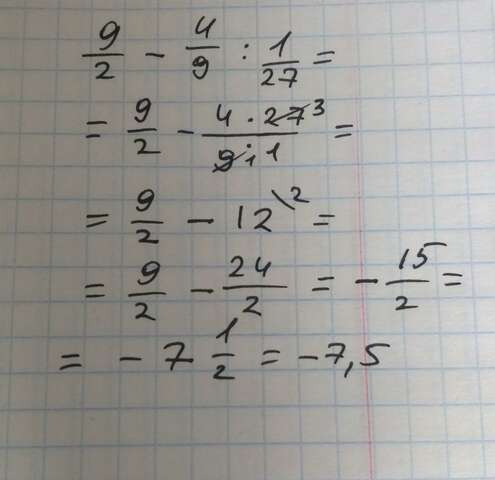 9/2 - 4/9 : 1/27 =
= 9/2 - (4 · 27 3)/(9 1 · 1) =
= 9/2 - 12 \2 =
= 9/2 - 24/2 = - 15/2 =
= - 7 1/2 = -7,5